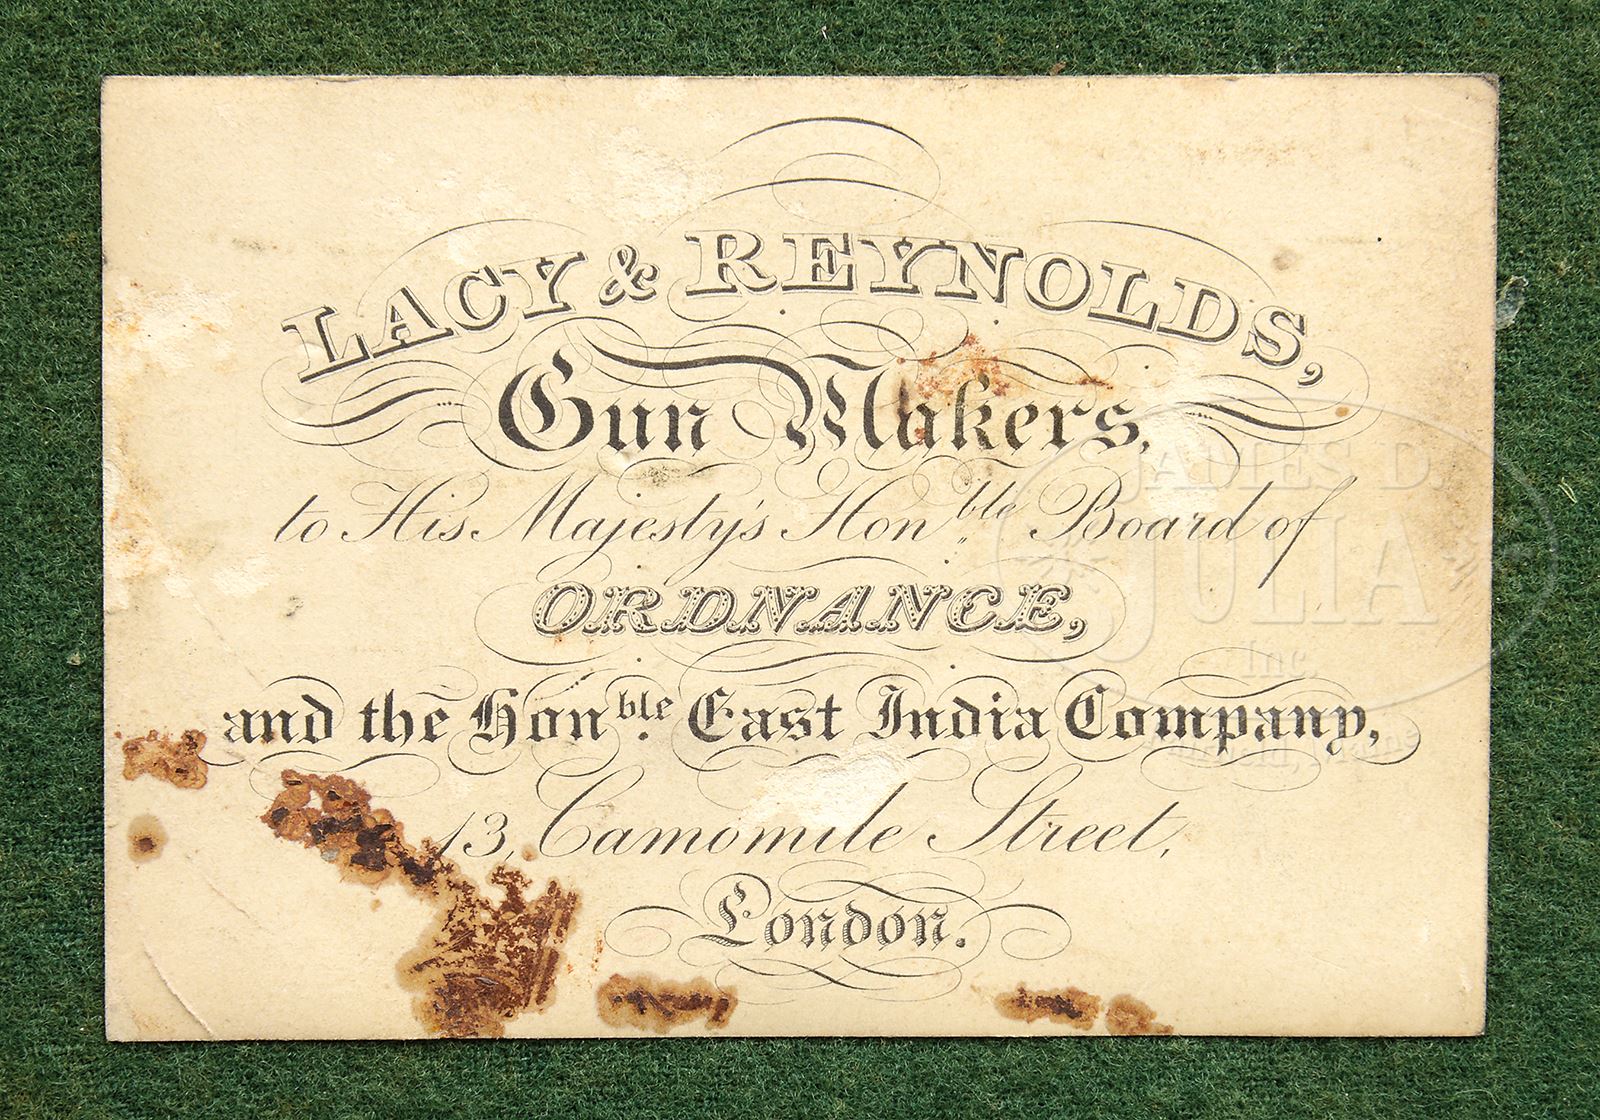 LACY & REYNOLDS,
Gun Makers,
to His Majesty's Hon.ble Board of
ORDNANCE,
and the Hon.ble East India Company,
13, Camomile Street,
London.
JAMES D.
JULIA
Inc.